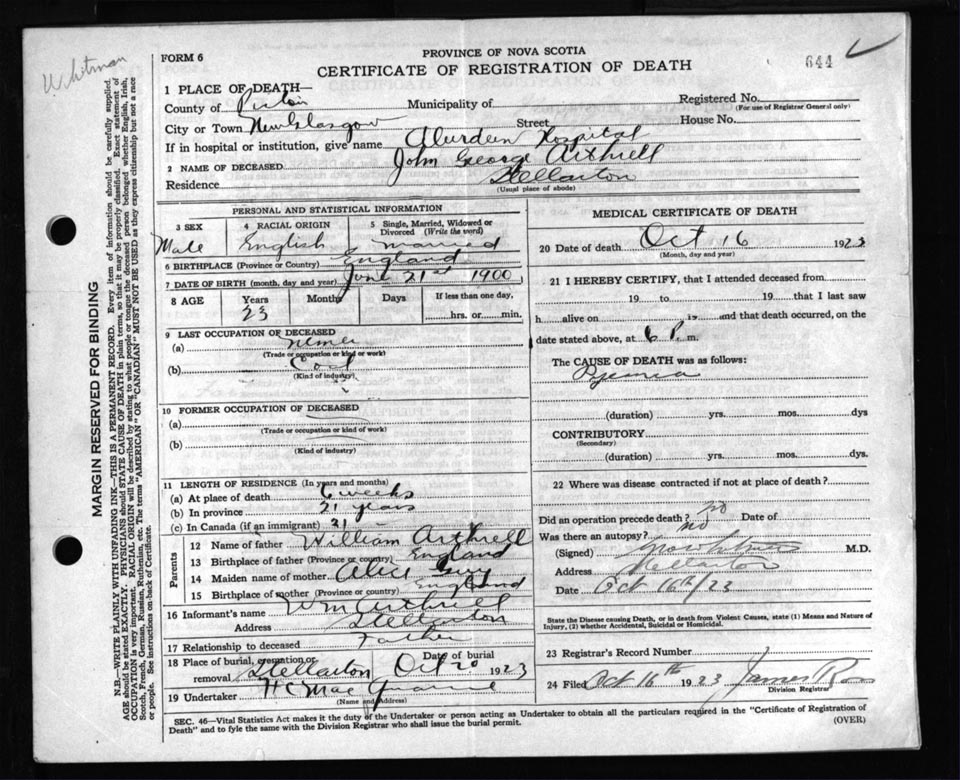 Whitman
FORM 6
PROVINCE OF NOVA SCOTIA
CERTIFICATE OF REGISTRATION OF DEATH
644
1 PLACE OF DEATH—
County of Pictou Municipality of Registered No.
(For use of Registrar General only)
City or Town New Glasgow Street House No.
If in hospital or institution, give name Aberdeen Hospital
2 NAME OF DECEASED John George Arthrell
Residence Stellarton
(Usual place of abode)
PERSONAL AND STATISTICAL INFORMATION
3 SEX 4 RACIAL ORIGIN 5 Single, Married, Widowed or Divorced (Write the word)
Male English Married
6 BIRTHPLACE (Province or Country) England
7 DATE OF BIRTH (month, day and year) June 21st 1900
8 AGE Years Months Days If less than one day,
23 hrs. or min.
9 LAST OCCUPATION OF DECEASED
(a) Miner
(Trade or occupation or kind of work)
(b) Coal
(Kind of industry)
10 FORMER OCCUPATION OF DECEASED
(a)
(Trade or occupation or kind of work)
(b)
(Kind of industry)
11 LENGTH OF RESIDENCE (In years and months)
(a) At place of death 6 weeks
(b) In province 21 years
(c) In Canada (if an immigrant) 21
Parents
12 Name of father William Arthrell
13 Birthplace of father (Province or country) England
14 Maiden name of mother Alice Guy
15 Birthplace of mother (Province or country) England
16 Informant's name Wm Arthrell
Address Stellarton
17 Relationship to deceased Father
18 Place of burial, cremation or removal Stellarton Date of burial Oct 20 1923
19 Undertaker H C Mac Quarrie
(Name and Address)
MEDICAL CERTIFICATE OF DEATH
20 Date of death Oct 16 1923
(Month, day and year)
21 I HEREBY CERTIFY, that I attended deceased from
19 to 19 that I last saw
h alive on is and that death occurred, on the
date stated above, at 6 P. m.
The CAUSE OF DEATH was as follows:
Pyemia
(duration) yrs. mos. dys
CONTRIBUTORY
(Secondary)
(duration) yrs. mos. dys.
22 Where was disease contracted if not at place of death?
Did an operation precede death? no Date of
Was there an autopsy? no
(Signed) M.D.
Address Stellarton
Date Oct 16th/23
State the Disease causing Death, or in death from Violent Causes, state (1) Means and Nature of
Injury, (2) whether Accidental, Suicidal or Homicidal.
23 Registrar's Record Number
24 Filed Oct 16th 1923 James Ross
Division Registrar
SEC. 46—Vital Statistics Act makes it the duty of the Undertaker or person acting as Undertaker to obtain all the particulars required in the "Certificate of Registration of
Death" and to fyle the same with the Division Registrar who shall issue the burial permit.
(OVER)
MARGIN RESERVED FOR BINDING
N.B.—WRITE PLAINLY WITH UNFADING INK—THIS IS A PERMANENT RECORD. Every item of information should be carefully supplied.
AGE should be stated EXACTLY. PHYSICIANS should STATE CAUSE OF DEATH in plain terms, so that it may be properly classified. Exact statement of
OCCUPATION is very important. RACIAL ORIGIN will be described by stating to what people or tongue the deceased person belonged whether English, Irish,
Scotch, French, German, Russian, Ruthenian, etc. The terms "AMERICAN" OR "CANADIAN" MUST NOT BE USED as they express citizenship but not a race
or people. See instructions on back of Certificate.